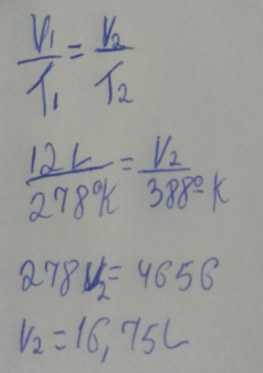 V₁/T₁ = V₂/T₂
12L/278°K = V₂/388°K
278V₂ = 4656
V₂ = 16,75L